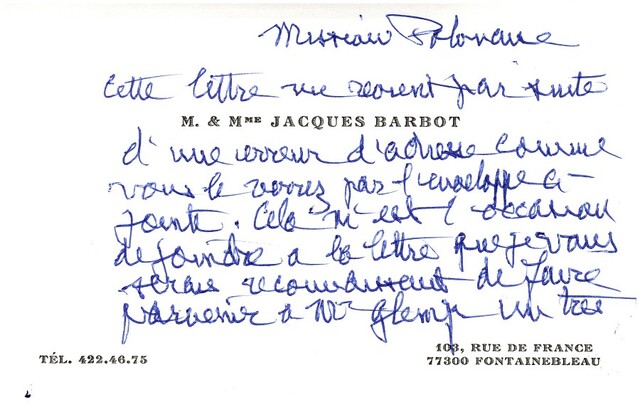 Mission Polonaise
Cette lettre me revient par suite
M. & MME JACQUES BARBOT
d'une erreur d'adresse comme
vous le verrez par l'enveloppe ci-
jointe. Cela m'est l'occasion
de joindre à la lettre que je vous
serais reconnaissant de faire
parvenir à Mgr Glemp un très
TÉL. 422.46.75
103, RUE DE FRANCE
77300 FONTAINEBLEAU